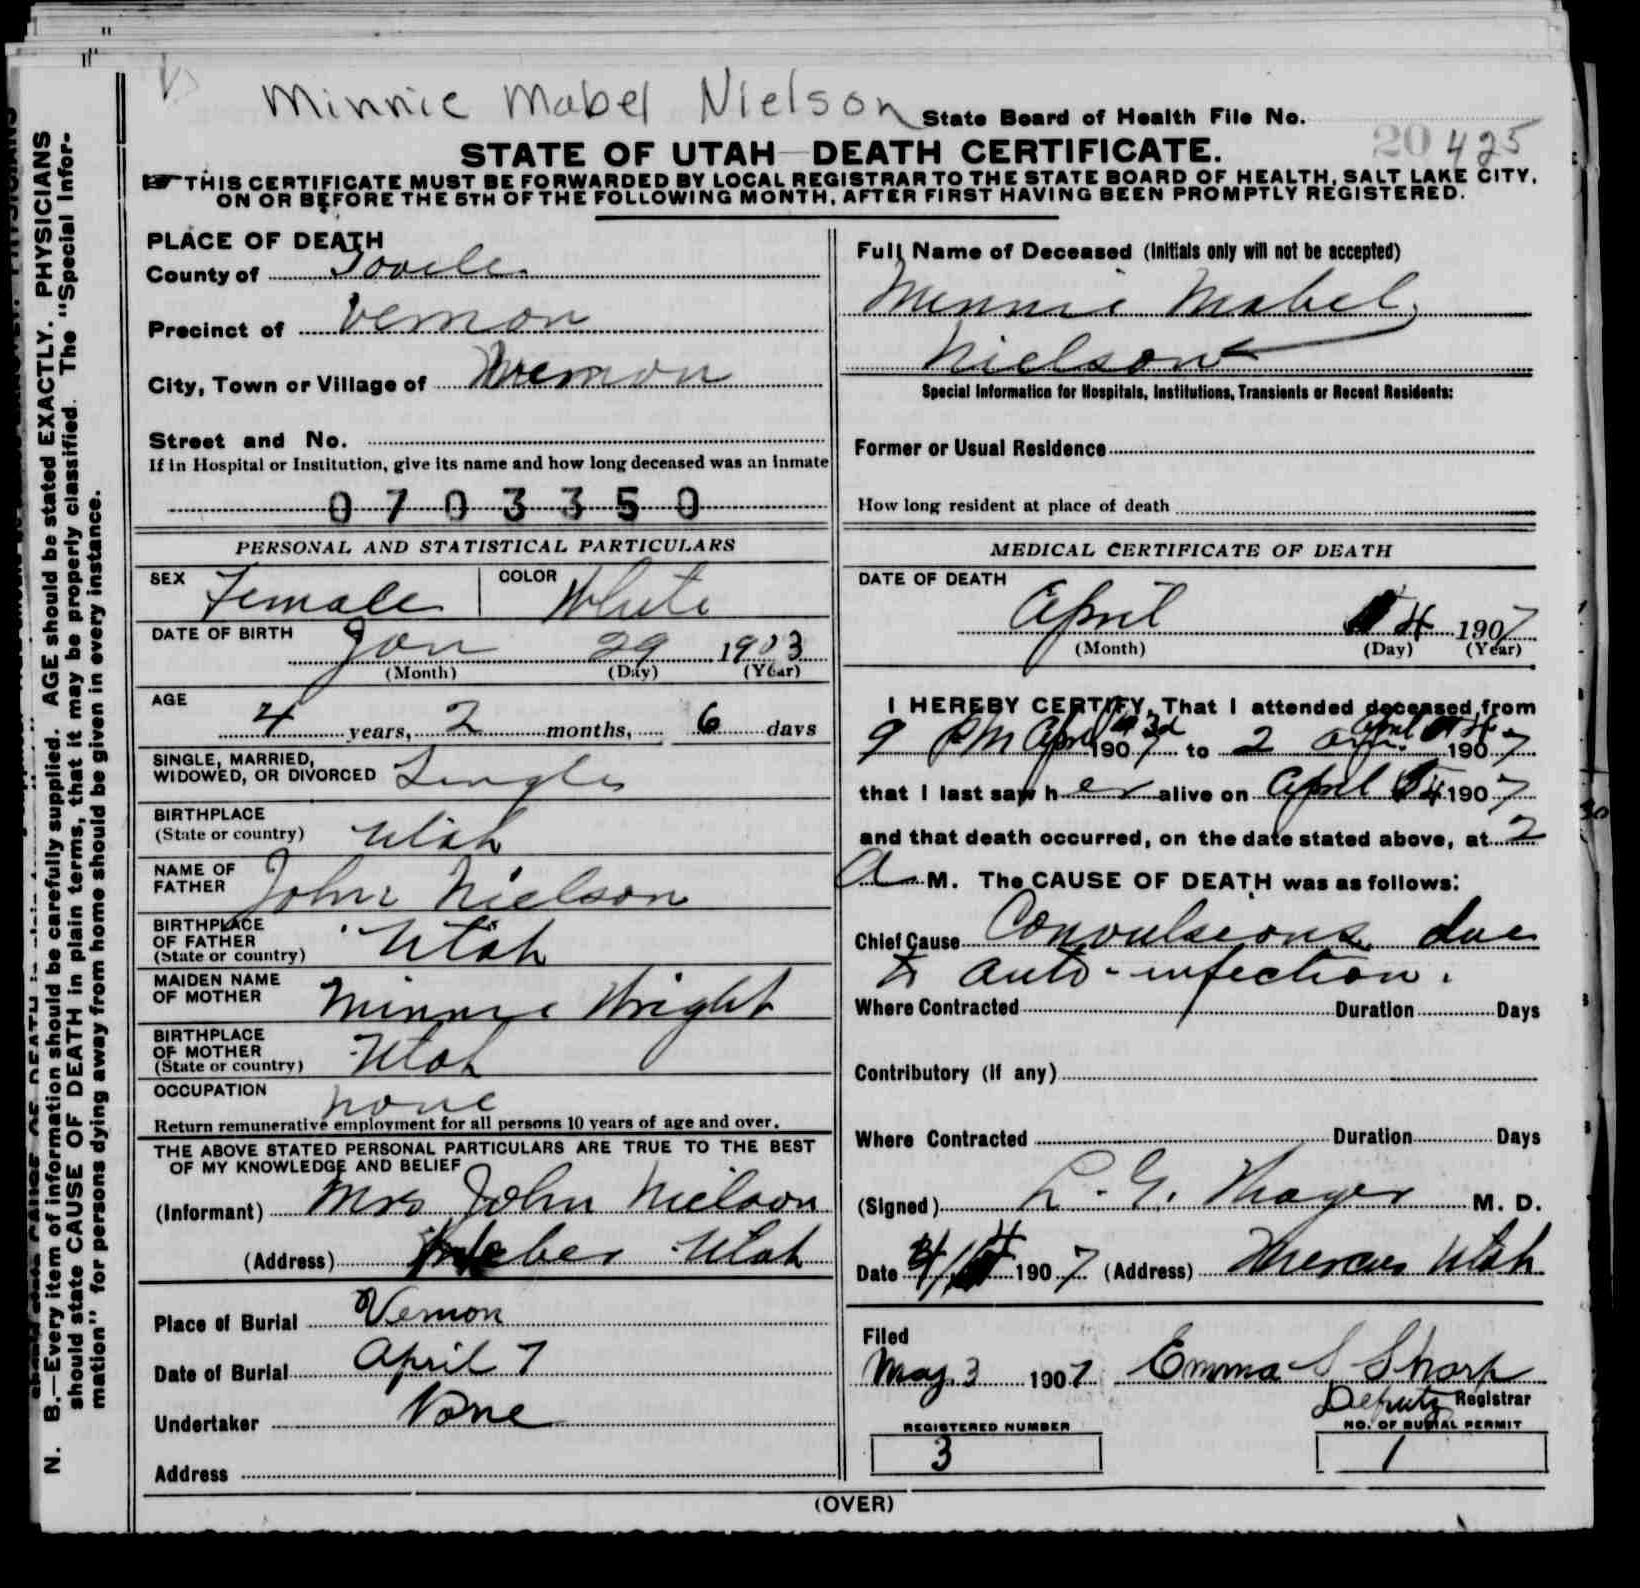 Minnie Mabel Nielson
State Board of Health File No. 20 425
STATE OF UTAH—DEATH CERTIFICATE.
THIS CERTIFICATE MUST BE FORWARDED BY LOCAL REGISTRAR TO THE STATE BOARD OF HEALTH, SALT LAKE CITY,
ON OR BEFORE THE 5TH OF THE FOLLOWING MONTH, AFTER FIRST HAVING BEEN PROMPTLY REGISTERED.
PLACE OF DEATH
County of Tooele
Precinct of Vernon
City, Town or Village of Vernon
Street and No.
If in Hospital or Institution, give its name and how long deceased was an inmate
0703350
Full Name of Deceased (Initials only will not be accepted)
Minnie Mabel
Nielson
Special Information for Hospitals, Institutions, Transients or Recent Residents:
Former or Usual Residence
How long resident at place of death
PERSONAL AND STATISTICAL PARTICULARS
SEX Female COLOR White
DATE OF BIRTH Jan 29 1903
(Month) (Day) (Year)
AGE
4 years, 2 months, 6 days
SINGLE, MARRIED,
WIDOWED, OR DIVORCED Single
BIRTHPLACE
(State or country) Utah
NAME OF
FATHER John Nielson
BIRTHPLACE
OF FATHER
(State or country) Utah
MAIDEN NAME
OF MOTHER Minnie Wright
BIRTHPLACE
OF MOTHER
(State or country) Utah
OCCUPATION none
Return remunerative employment for all persons 10 years of age and over.
THE ABOVE STATED PERSONAL PARTICULARS ARE TRUE TO THE BEST
OF MY KNOWLEDGE AND BELIEF
(Informant) Mrs John Nielson
(Address) Utah
Place of Burial Vernon
Date of Burial April 7
Undertaker None
Address
MEDICAL CERTIFICATE OF DEATH
DATE OF DEATH
April 4 1907
(Month) (Day) (Year)
I HEREBY CERTIFY, That I attended deceased from
9 PM April 3d 1907 to 2 am. April 4 1907
that I last saw her alive on April 4 1907
and that death occurred, on the date stated above, at 2
A M. The CAUSE OF DEATH was as follows:
Chief Cause Convulsions due
to auto-infection.
Where Contracted Duration Days
Contributory (If any)
Where Contracted Duration Days
(Signed) L. G. Thayer M. D.
Date 4/4 1907 (Address) Mercur Utah
Filed
May 3 1907 Emma S Sharp
Deputy Registrar
REGISTERED NUMBER
3
NO. OF BURIAL PERMIT
1
(OVER)
N. B.—Every item of information should be carefully supplied. AGE should be stated EXACTLY. PHYSICIANS
should state CAUSE OF DEATH in plain terms, that it may be properly classified. The "Special Infor-
mation" for persons dying away from home should be given in every instance.